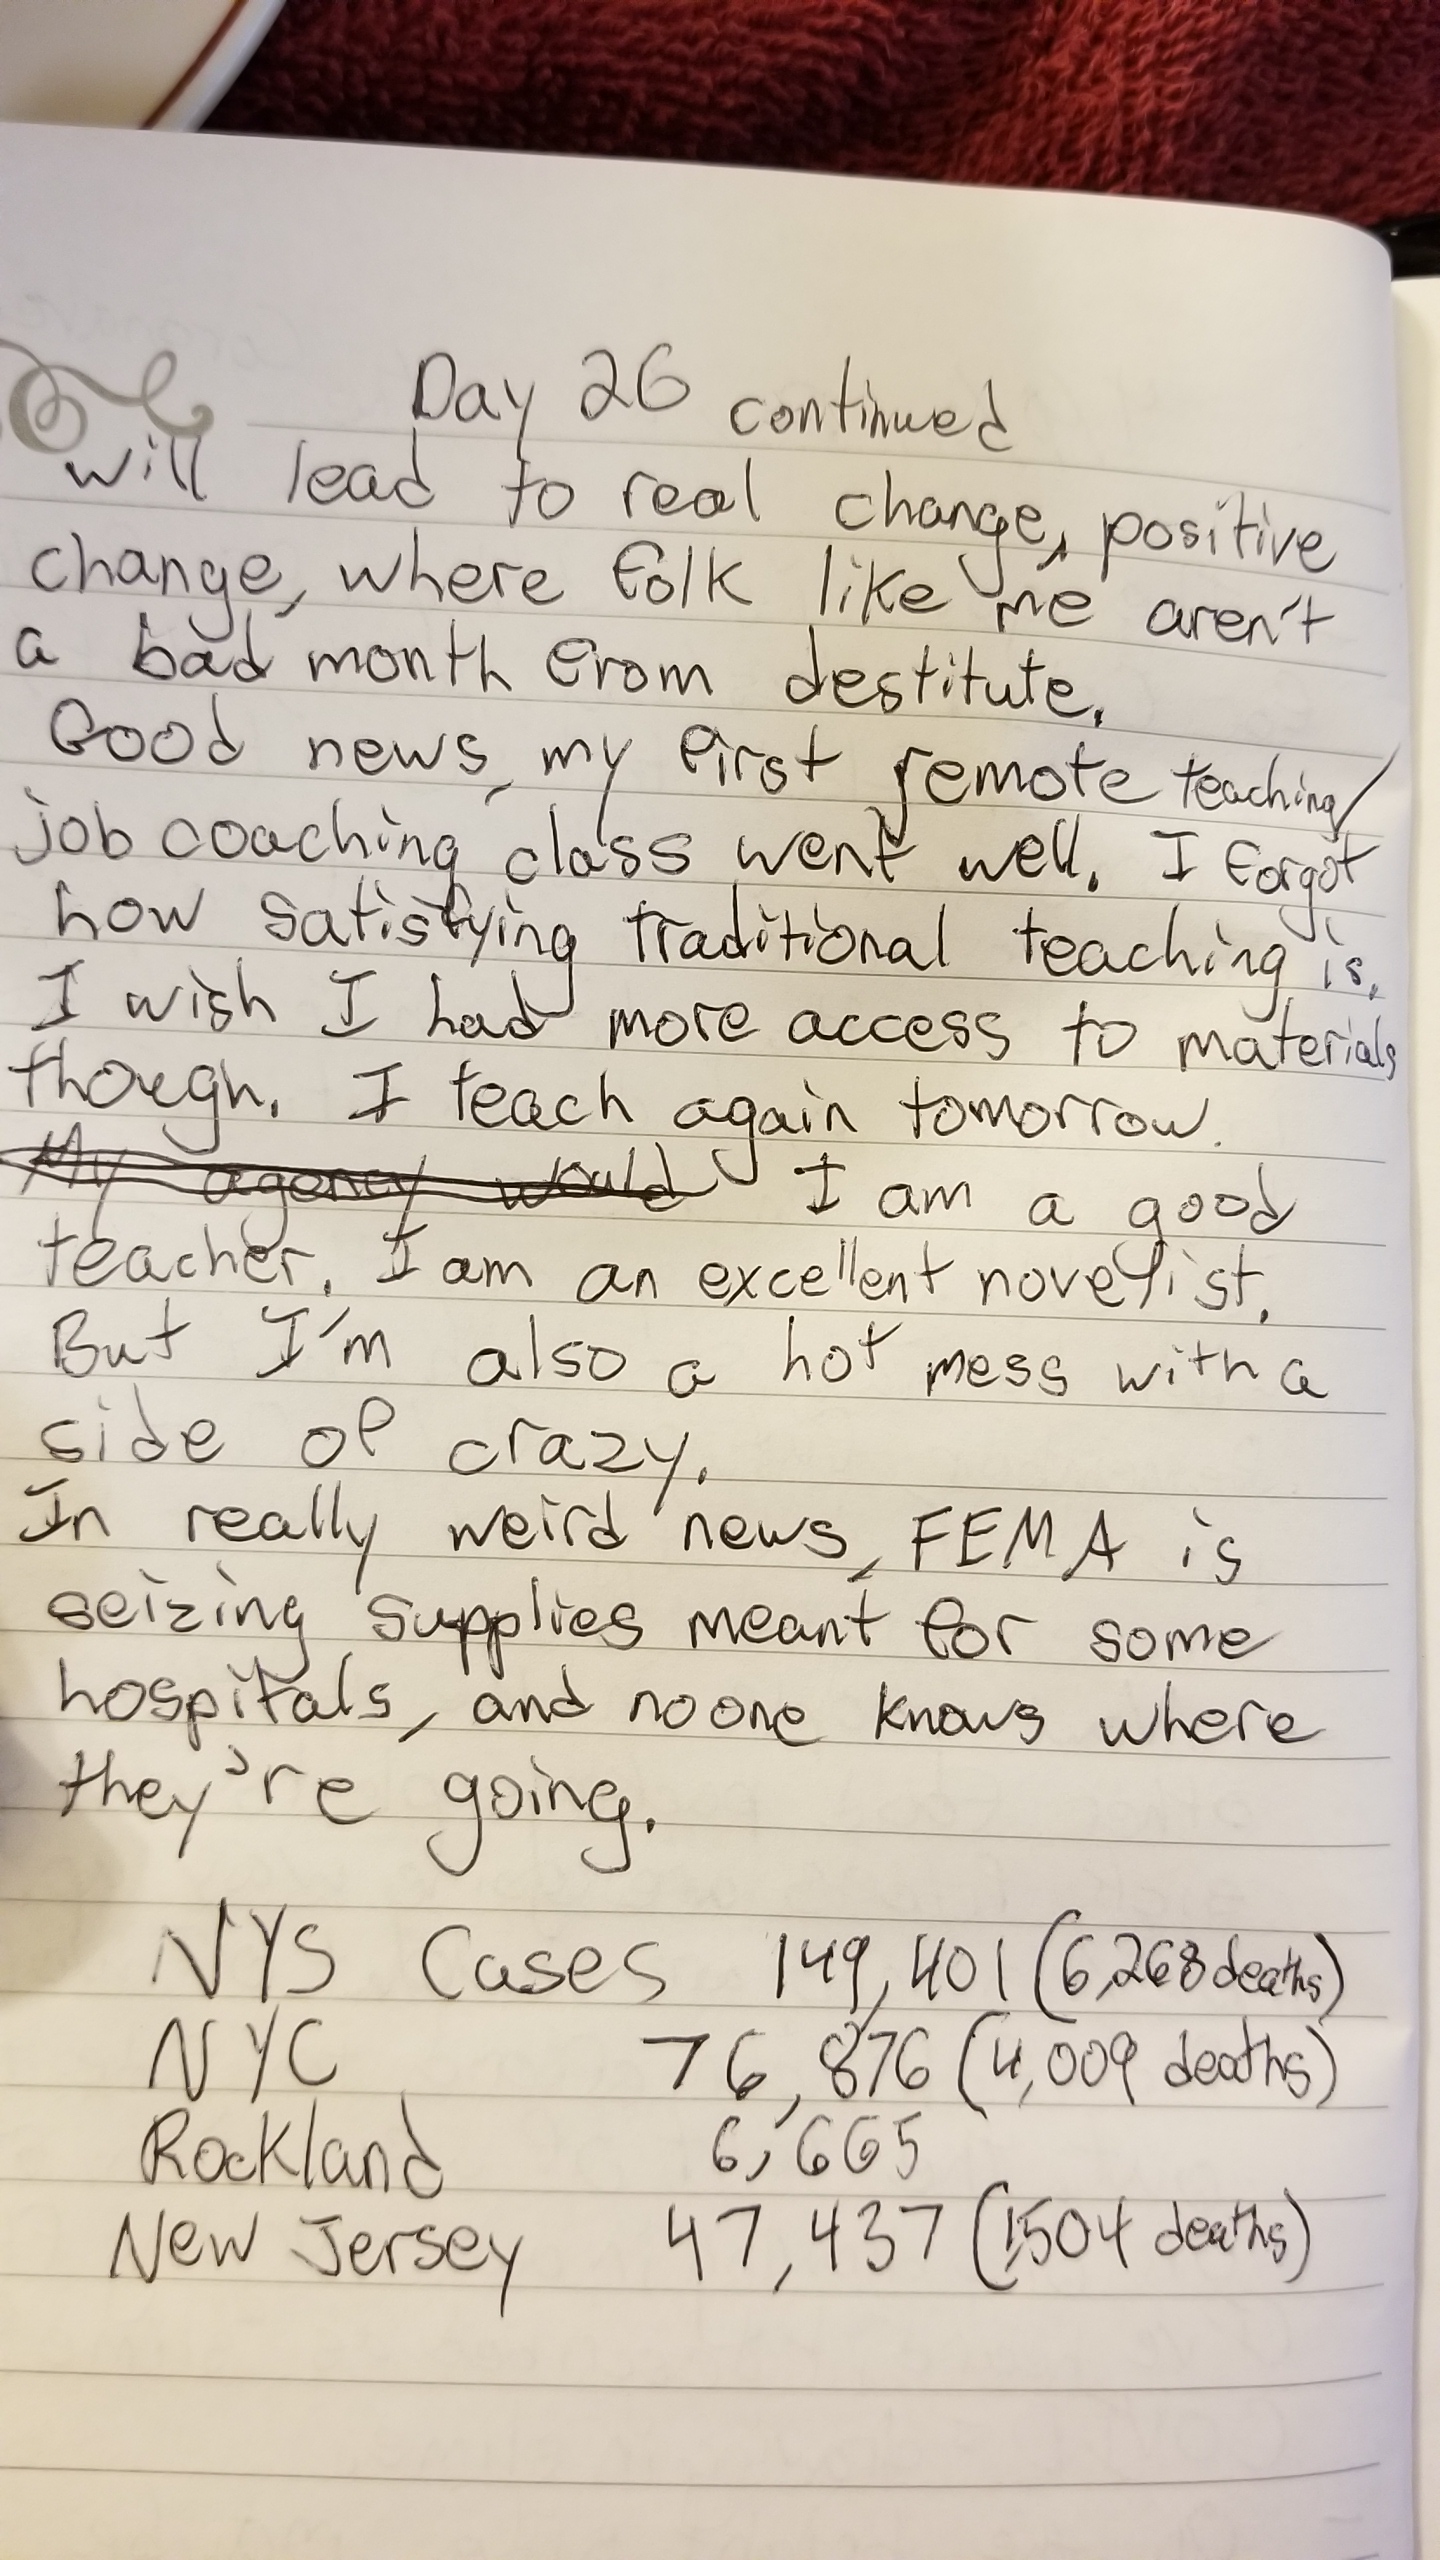 Day 26 continued
will lead to real change, positive
change, where folk like me aren't
a bad month from destitute.
Good news, my first remote teaching/
job coaching class went well. I forgot
how satisfying traditional teaching is.
I wish I had more access to materials
though. I teach again tomorrow.
My agency would I am a good
teacher. I am an excellent novelist.
But I'm also a hot mess with a
side of crazy.
In really weird news, FEMA is
seizing supplies meant for some
hospitals, and no one knows where
they're going.
NYS Cases 149,401 (6,268 deaths)
NYC 76,876 (4,009 deaths)
Rockland 6,665
New Jersey 47,437 (1,504 deaths)